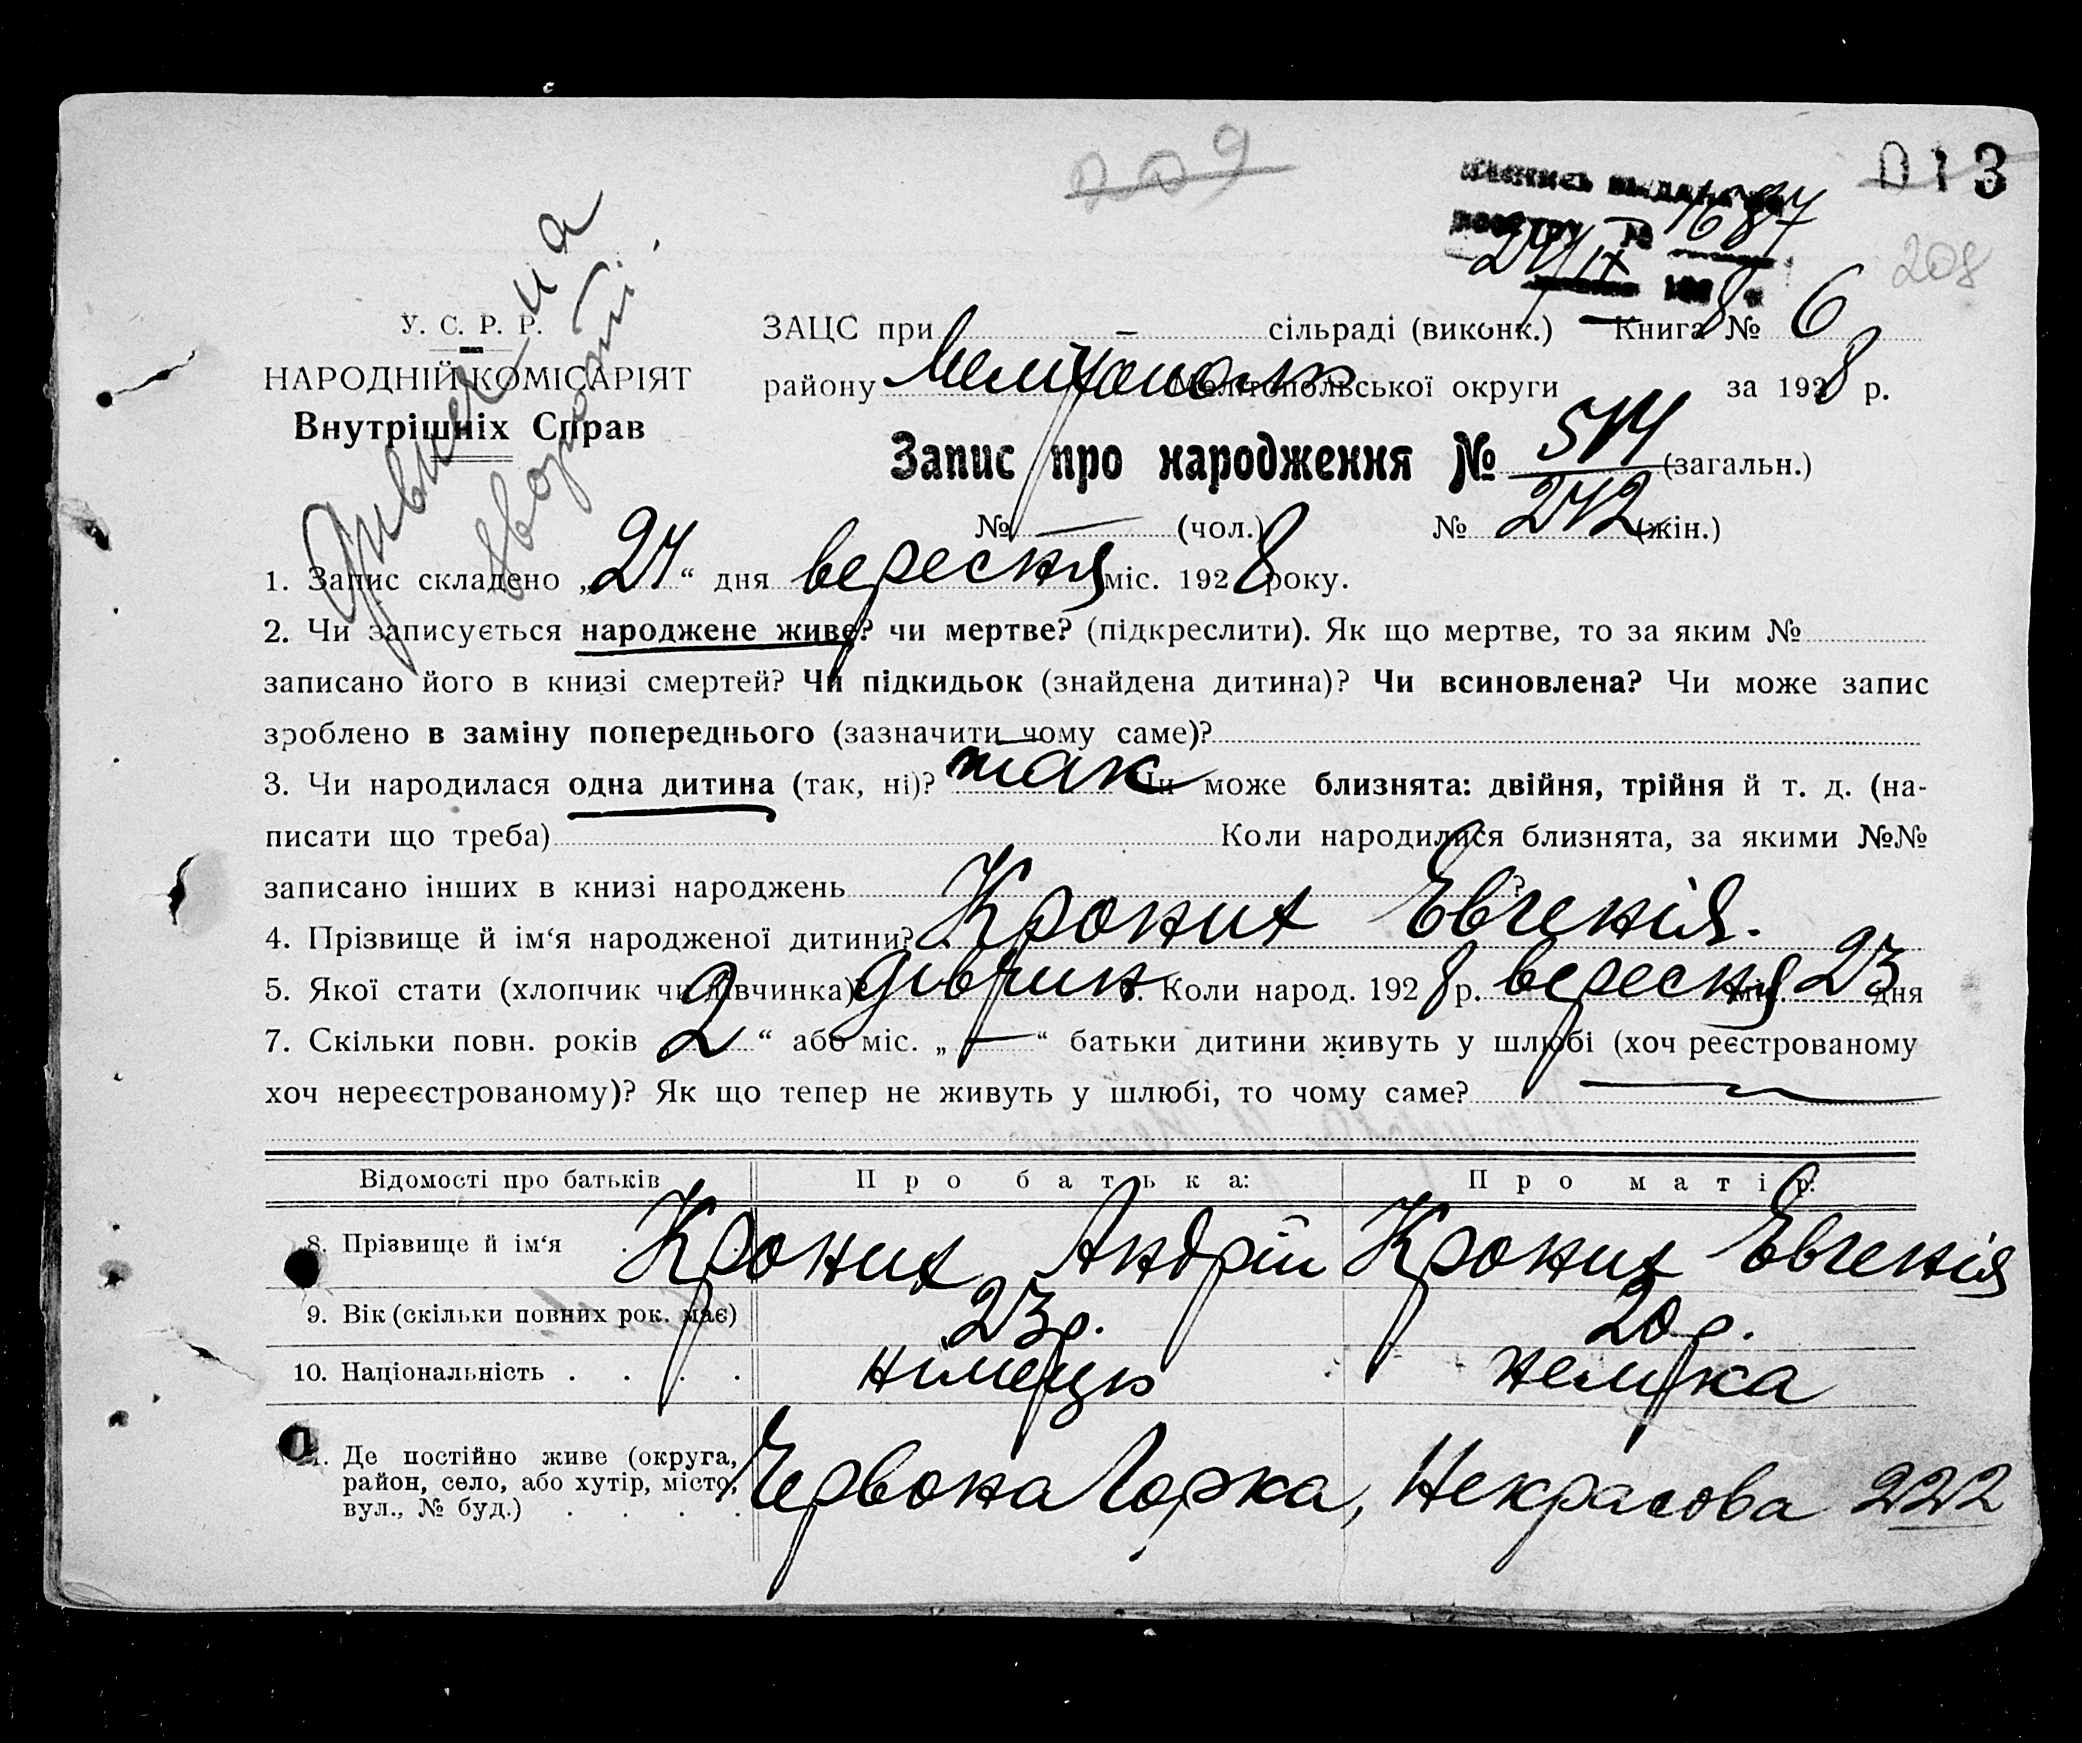 209
013
выпись выдана по
реестру № 1687
24/IX 1928 г.
208
Дивись на
звороті.
У. С. Р. Р.
НАРОДНІЙ КОМІСАРІЯТ
Внутрішніх Справ
ЗАЦС при – сільраді (виконк.) Книга № 6
району Мелітополь Мелітопольської округи за 1928 р.
Запис про народження № 514 (загальн.)
№ — (чол.) № 242 (жін.)
1. Запис складено „24“ дня вересня міс. 1928 року.
2. Чи записується народжене живе? чи мертве? (підкреслити). Як що мертве, то за яким №
записано його в книзі смертей? Чи підкидьок (знайдена дитина)? Чи всиновлена? Чи може запис
зроблено в заміну попереднього (зазначити чому саме)?
3. Чи народилася одна дитина (так, ні)? так Чи може близнята: двійня, трійня й т. д. (на-
писати що треба) Коли народилися близнята, за якими №№
записано інших в книзі народжень ?
4. Прізвище й ім‘я народженої дитини? Кроних Евгенія.
5. Якої стати (хлопчик чи дівчинка)? дівчин. Коли народ. 1928 р. вересня міс. 23 дня
7. Скільки повн. років „2“ або міс. „—“ батьки дитини живуть у шлюбі (хоч реєстрованому
хоч нереєстрованому)? Як що тепер не живуть у шлюбі, то чому саме? —
Відомості про батьків Про батька: Про матір:
8. Прізвище й ім‘я . . Кроних Андрій Кроних Евгенія
9. Вік (скільки повних рок. має) 23 р. 20 р.
10. Національність . . . . німець немка
11. Де постійно живе (округа,
район, село, або хутір, місто,
вул., № буд.) . . . . Червона Горка, Некрасова 222